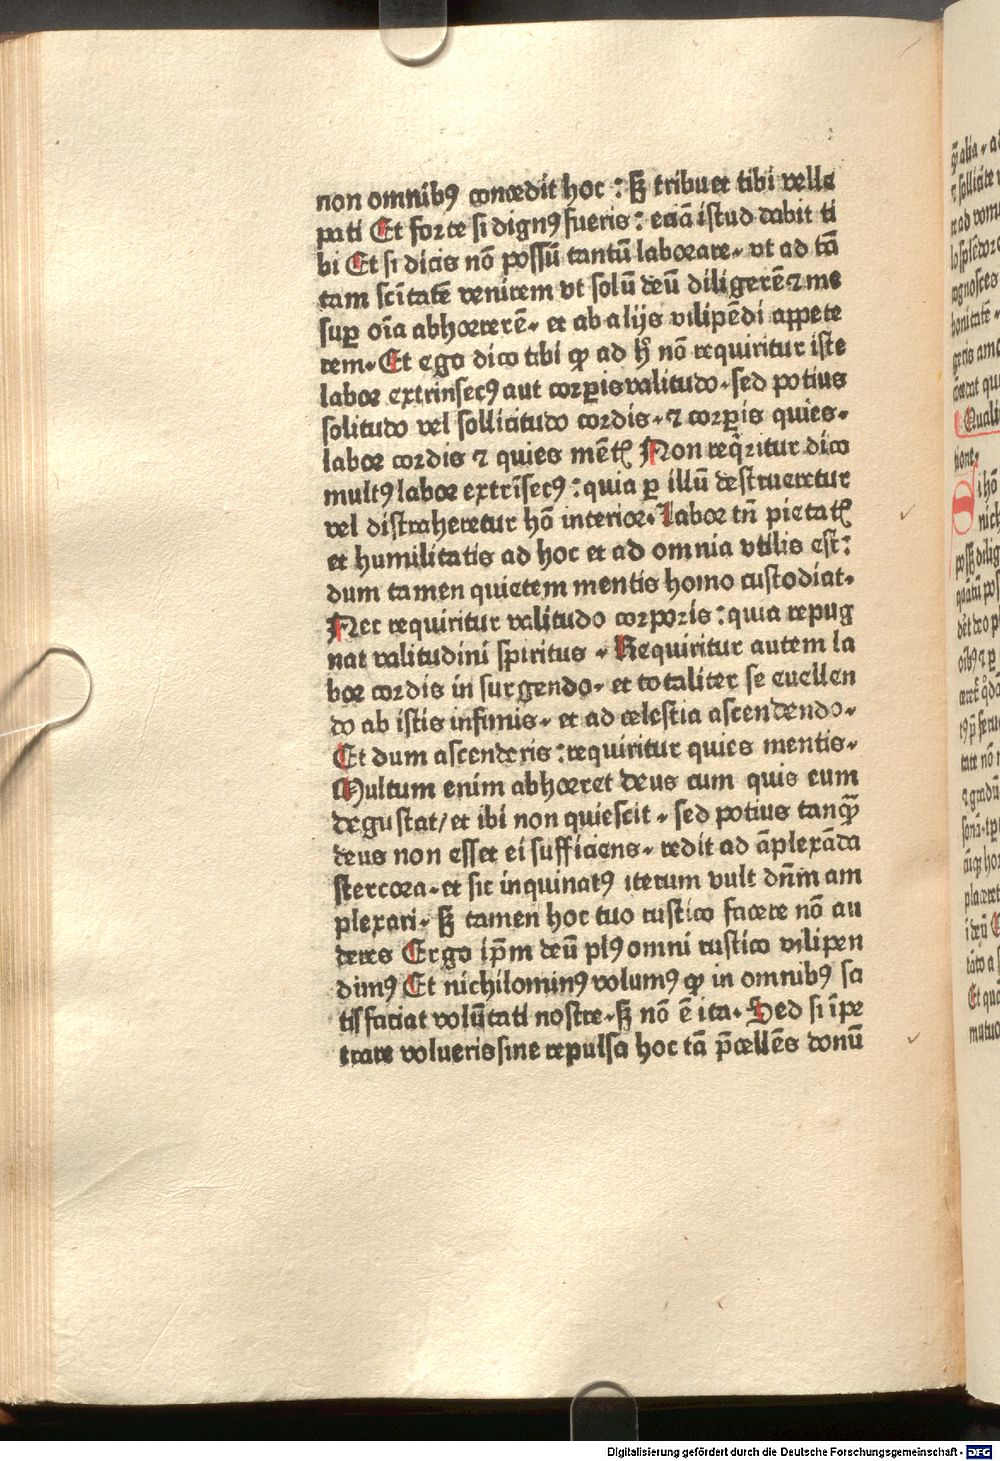 non omnibꝰ concedit hoc : sꝫ tribuet tibi velle
pati Et forte si dignꝰ fueris : eciā istud dabit ti
bi Et si dicis nō possū tantū laborare. vt ad tā
tam scītatē venirem vt solū deū diligerē ⁊ me
suꝑ oīa abhorrerē. et ab alijs vilipēdi appete
rem. Et ego dico tibi ꝙ ad hͦ nō requiritur iste
labor extrinsecꝰ aut corꝑis valitudo. sed potius
solitudo vel sollicitudo cordis. ⁊ corꝑis quies.
labor cordis ⁊ quies mētꝭ Non reqͥritur dico
multꝰ labor extrīsecꝰ : quia ꝑ illū destrueretur
vel distraheretur hō interior. Labor tn̄ pietatꝭ
et humilitatis ad hoc et ad omnia vtilis est :
dum tamen quietem mentis homo custodiat.
Nec requiritur valitudo corporis : quia repug
nat valitudini spiritus . Requiritur autem la
bor cordis in surgendo. et totaliter se euellen
do ab istis infimis. et ad celestia ascendendo.
Et dum ascenderis : requiritur quies mentis.
Multum enim abhorret deus cum quis eum
degustat/ et ibi non quiescit . sed potius tanqꝫ̄
deus non esset ei sufficiens. redit ad āplexāda
stercora. et sic inquinatꝰ iterum vult dn̄m am
plexari. sꝫ tamen hoc tuo rustico facere nō au
deres Ergo ip̄m deū plꝰ omni rustico vilipen
dimꝰ Et nichilominꝰ volumꝰ ꝙ in omnibꝰ sa
tisfaciat volūtati nostre. sꝫ nō ē ita. Sed si īpe
trare volueris sine repulsa hoc tā p̄cellēs donū
Digitalisierung gefördert durch die Deutsche Forschungsgemeinschaft - DFG